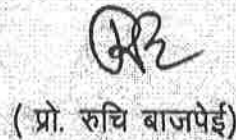 ( प्रो. रुचि बाजपेई)